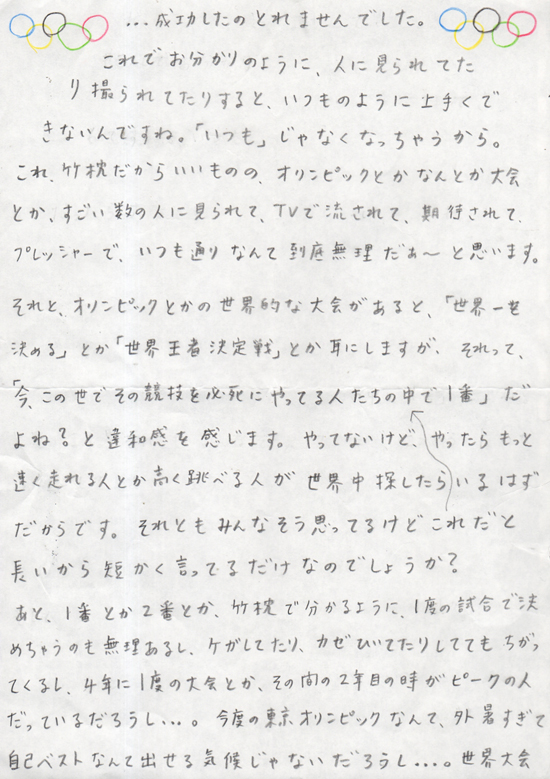 ...成功したのとれませんでした。
これでお分かりのように、人に見られてた
り撮られてたりすると、いつものように上手くで
きないんですね。「いつも」じゃなくなっちゃうから。
これ、竹枕だからいいものの、オリンピックとかなんとか大会
とか、すごい数の人に見られて、TVで流されて、期待されて、
プレッシャーで、いつも通りなんて到底無理だぁ〜と思います。
それと、オリンピックとかの世界的な大会があると、「世界一を
決める」とか「世界王者決定戦」とか耳にしますが、それって、
「今、この世でその競技を必死にやってる人たちの中で1番」だ
よね?と違和感を感じます。やってないけど、やったらもっと
速く走れる人とか高く跳べる人が世界中探したらいるはず
だからです。それともみんなそう思ってるけどこれだと
長いから短かく言ってるだけなのでしょうか?
あと、1番とか2番とか、竹枕で分かるように、1度の試合で決
めちゃうのも無理あるし、ケガしてたり、カゼひいてたりしてても ちがっ
てくるし、4年に1度の大会とか、その間の2年目の時がピークの人
だっているだろうし...。今度の東京オリンピックなんて、外暑すぎて
自己ベストなんて出せる気候じゃないだろうし...。世界大会